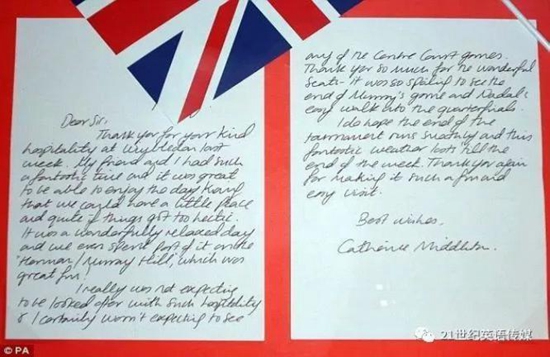 Dear Sir,
Thank you for your kind
hospitality at Wimbledon last
week. My friend and I had such
a fantastic time and it was great
to be able to enjoy the day knowing
that we could have a little peace
and quiet if things got too hectic.
It was a wonderfully relaxed day
and we even spent part of it on the
'Henman/Murray Hill', which was
great fun!
I really was not expecting
to be looked after with such hospitality
& I certainly wasn't expecting to see
any of the Centre Court games.
Thank you so much for the wonderful
seats - it was so exciting to see the
end of Murray's game and Nadal's
easy walk into the quarterfinals.
I do hope the end of the
tournament runs smoothly and this
fantastic weather lasts till the
end of the week. Thank you again
for making it such a fun and
easy visit.
Best wishes,
Catherine Middleton
© PA
21世纪英语传媒